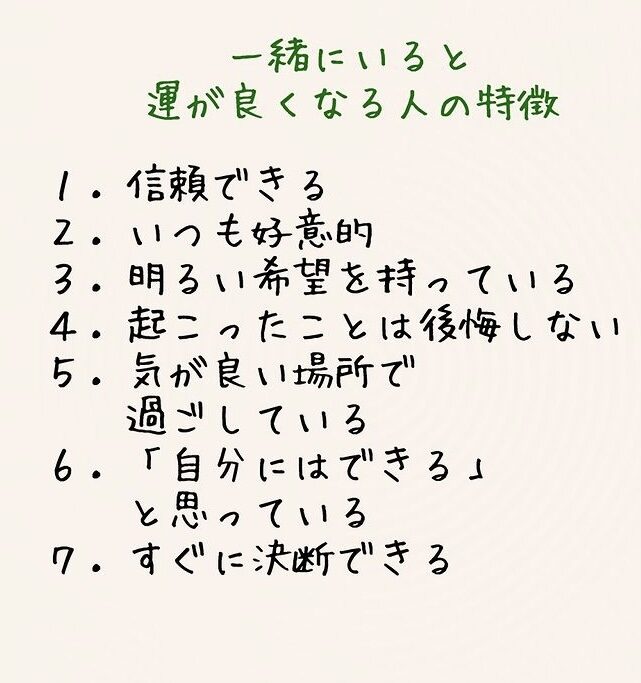 一緒にいると
運が良くなる人の特徴
1. 信頼できる
2. いつも好意的
3. 明るい希望を持っている
4. 起こったことは後悔しない
5. 気が良い場所で
過ごしている
6. 「自分にはできる」
と思っている
7. すぐに決断できる